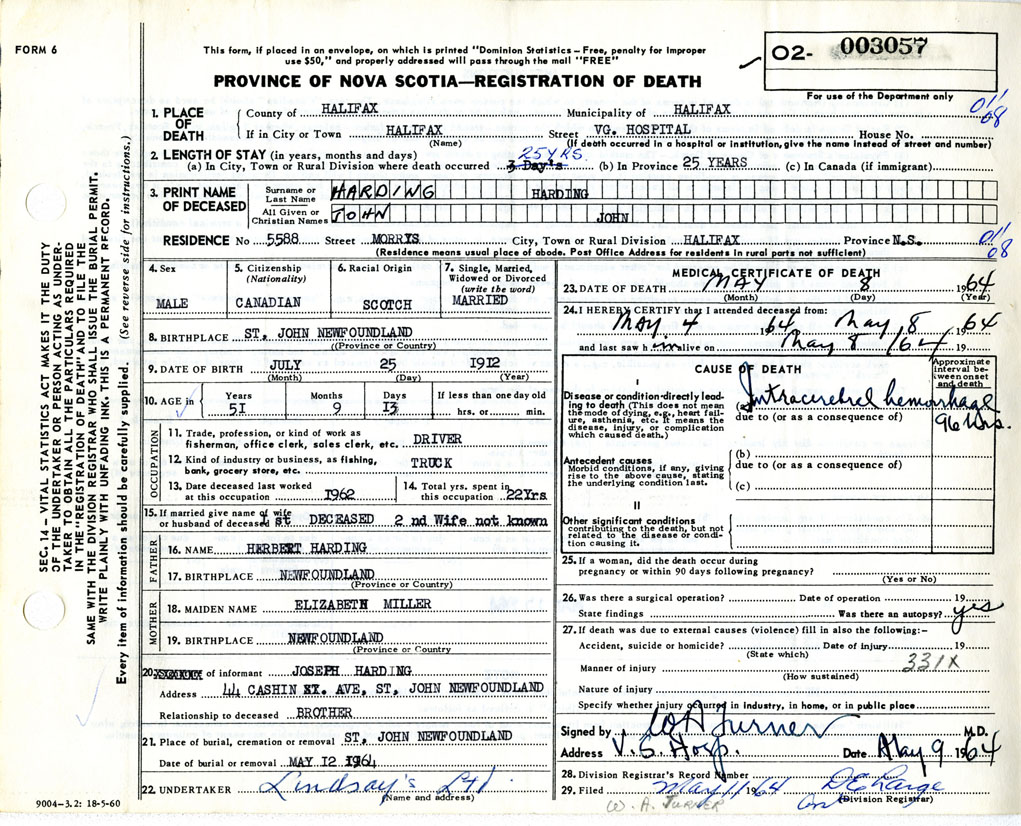 FORM 6
This form, if placed in an envelope, on which is printed "Dominion Statistics – Free, penalty for improper
use $50," and properly addressed will pass through the mail "FREE"
PROVINCE OF NOVA SCOTIA—REGISTRATION OF DEATH
O2- 003057
For use of the Department only
011
08
1. PLACE OF DEATH
County of HALIFAX Municipality of HALIFAX
If in City or Town HALIFAX Street VG. HOSPITAL House No.
(Name) (If death occurred in a hospital or institution, give the name instead of street and number)
2. LENGTH OF STAY (in years, months and days) 25 YRS.
(a) In City, Town or Rural Division where death occurred 3 Day's (b) In Province 25 YEARS (c) In Canada (if immigrant)
3. PRINT NAME OF DECEASED
Surname or Last Name HARDING HARDING
All Given or Christian Names JOHN JOHN
RESIDENCE No 5588 Street MORRYS City, Town or Rural Division HALIFAX Province N.S.
(Residence means usual place of abode. Post Office Address for residents in rural parts not sufficient)
011
08
4. Sex
MALE
5. Citizenship
(Nationality)
CANADIAN
6. Racial Origin
SCOTCH
7. Single, Married,
Widowed or Divorced
(write the word)
MARRIED
8. BIRTHPLACE ST. JOHN NEWFOUNDLAND
(Province or Country)
9. DATE OF BIRTH JULY 25 1912
(Month) (Day) (Year)
10. AGE in
Years Months Days If less than one day old
51 9 13 hrs. or min.
OCCUPATION
11. Trade, profession, or kind of work as
fisherman, office clerk, sales clerk, etc. DRIVER
12. Kind of industry or business, as fishing,
bank, grocery store, etc. TRUCK
13. Date deceased last worked
at this occupation 1962
14. Total yrs. spent in
this occupation 22Yrs
15. If married give name of wife
or husband of deceased 1 st DECEASED 2 nd Wife not known
FATHER
16. NAME HERBERT HARDING
17. BIRTHPLACE NEWFOUNDLAND
(Province or Country)
MOTHER
18. MAIDEN NAME ELIZABETH MILLER
19. BIRTHPLACE NEWFOUNDLAND
(Province or Country)
20. of informant JOSEPH HARDING
Address 44 CASHIN AVE, ST, JOHN NEWFOUNDLAND
Relationship to deceased BROTHER
21. Place of burial, cremation or removal ST, JOHN NEWFOUNDLAND
Date of burial or removal MAY 12 1964
22. UNDERTAKER Lindsay's Ltd.
(Name and address)
9004–3.2: 18-5-60
MEDICAL CERTIFICATE OF DEATH
23. DATE OF DEATH MAY 8 1964
(Month) (Day) (Year)
24. I HEREBY CERTIFY that I attended deceased from:
May 4 1964 May 8 1964
and last saw him alive on May 8 1964 19
CAUSE OF DEATH
Approximate
interval be-
tween onset
and death
I
Disease or condition-directly lead-
ing to death (This does not mean
the mode of dying, e.g., heart fail-
ure, asthenia, etc. It means the
disease, injury, or complication
which caused death.)
(a) Intracirebral hemorrhage
96 hrs.
due to (or as a consequence of)
Antecedent causes
Morbid conditions, if any, giving
rise to the above cause, stating
the underlying condition last.
(b)
due to (or as a consequence of)
(c)
II
Other significant conditions
contributing to the death, but not
related to the disease or condi-
tion causing it.
25. If a woman, did the death occur during
pregnancy or within 90 days following pregnancy?
(Yes or No)
26. Was there a surgical operation? Date of operation 19
State findings Was there an autopsy? yes
27. If death was due to external causes (violence) fill in also the following:–
Accident, suicide or homicide? Date of injury 19
(State which)
331X
Manner of injury
(How sustained)
Nature of injury
Specify whether injury occurred in industry, in home, or in public place
Signed by WA Turner M.D.
Address V. G. Hosp. Date May 9 1964
28. Division Registrar's Record Number
29. Filed May 11 1964
(Division Registrar)
W. A. TURNER
SEC. 14 – VITAL STATISTICS ACT MAKES IT THE DUTY
OF THE UNDERTAKER OR PERSON ACTING AS UNDER-
TAKER TO OBTAIN ALL THE PARTICULARS REQUIRED
IN THE "REGISTRATION OF DEATH" AND TO FILE THE
SAME WITH THE DIVISION REGISTRAR WHO SHALL ISSUE THE BURIAL PERMIT.
WRITE PLAINLY WITH UNFADING INK. THIS IS A PERMANENT RECORD.
Every item of information should be carefully supplied. (See reverse side for instructions.)